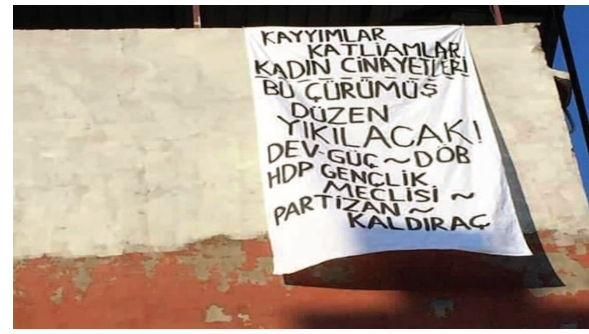 KAYYIMLAR
KATLİAMLAR
KADIN CİNAYETLERİ
BU ÇÜRÜMÜŞ
DÜZEN
YIKILACAK!
DEV-GÜÇ ~ DÖB
HDP GENÇLİK
MECLİSİ ~
PARTİZAN ~
KALDIRAÇ